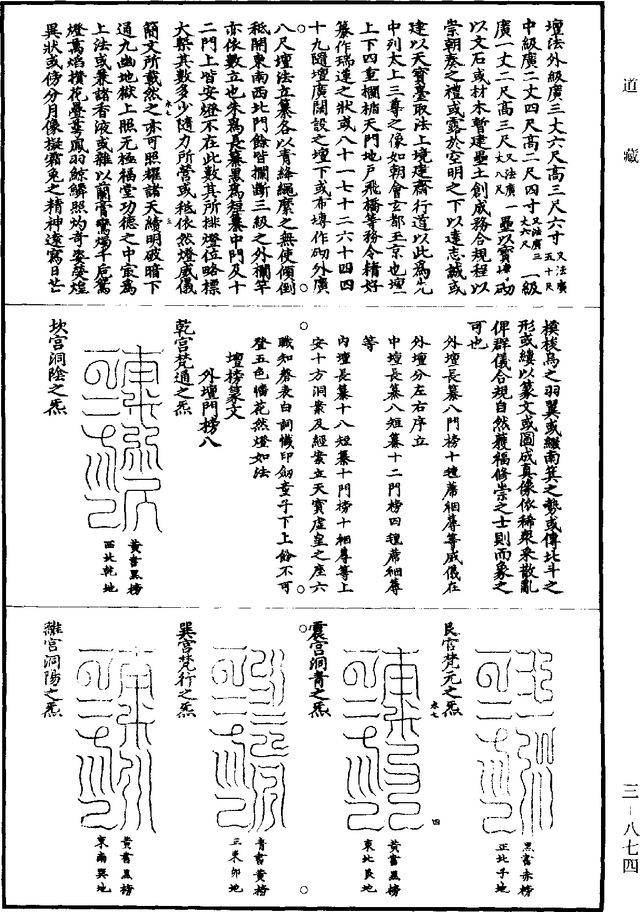 道藏
三-八七四
壇法外級廣三丈六尺高三尺六寸又法廣五十尺
中級廣二丈四尺高二尺四寸又法廣三丈六尺一級
廣一丈二尺高三尺又法廣丈八尺一壘以寶塼砌
以文石或材木暫建壘土創成務合規程以
崇朝奏之禮或露於空明之下以達志誠或
建以天寶臺取法上境建齋行道以此爲先
中列太上三尊之像如朝會玄都玉京也壇
上下四重欄楯天門地戶飛橋等務令精好
纂作瑞蓮之狀或八十一七十二六十四四
十九隨壇廣闊設之壇下或布塼作砌外廣
八尺壇法立纂各以青絳繩縻之無使傾倒
秪開東南西北門餘皆攔斷三級之外欄竿
亦依數立也朱爲長纂黑爲短纂中門及十
二門上皆安燈不在此數其所排燈位略標
大槩其數多少隨力所營或秪依然燈威儀
簡文所載然之亦可照耀諸天續明破暗下
通九幽地獄上照元極福堂功德之中寔爲
上法或兼諸香液或雜以蘭膏鸞燭千卮鴛
燈萬焰攢花疊蘂鳳羽鯨鱗照灼奇姿熒煌
異狀或傍分月像擬霜兔之精神遠寫日芒
模梭烏之羽翼或繼南箕之勢或傳北斗之
形或縷以篆文或圖成真像依稀衆采散亂
俾群儀合規自然護福修崇之士則而象之
可也
外壇長纂八門榜十種蓆細蓐等威儀在
外壇分左右序立
中壇長纂八短纂十二門榜四種蓆細蓐
等
內壇長纂十八短纂十門榜十細蓐等上
安十方洞案及經案立天寶虛皇之座六
職知磬表白詞懺印劒童子下上餘不可
登五色幡花然燈如法
壇榜篆文
外壇門榜八
乾宮梵通之炁
黃書黑榜
西北乾地
坎宮洞陰之炁
黑書赤榜
正北子地
艮宮梵元之炁
黃書黑榜
東北艮地
震宮洞青之炁
青書黃榜
正東卯地
巽宮梵行之炁
黃書黑榜
東南巽地
離宮洞陽之炁